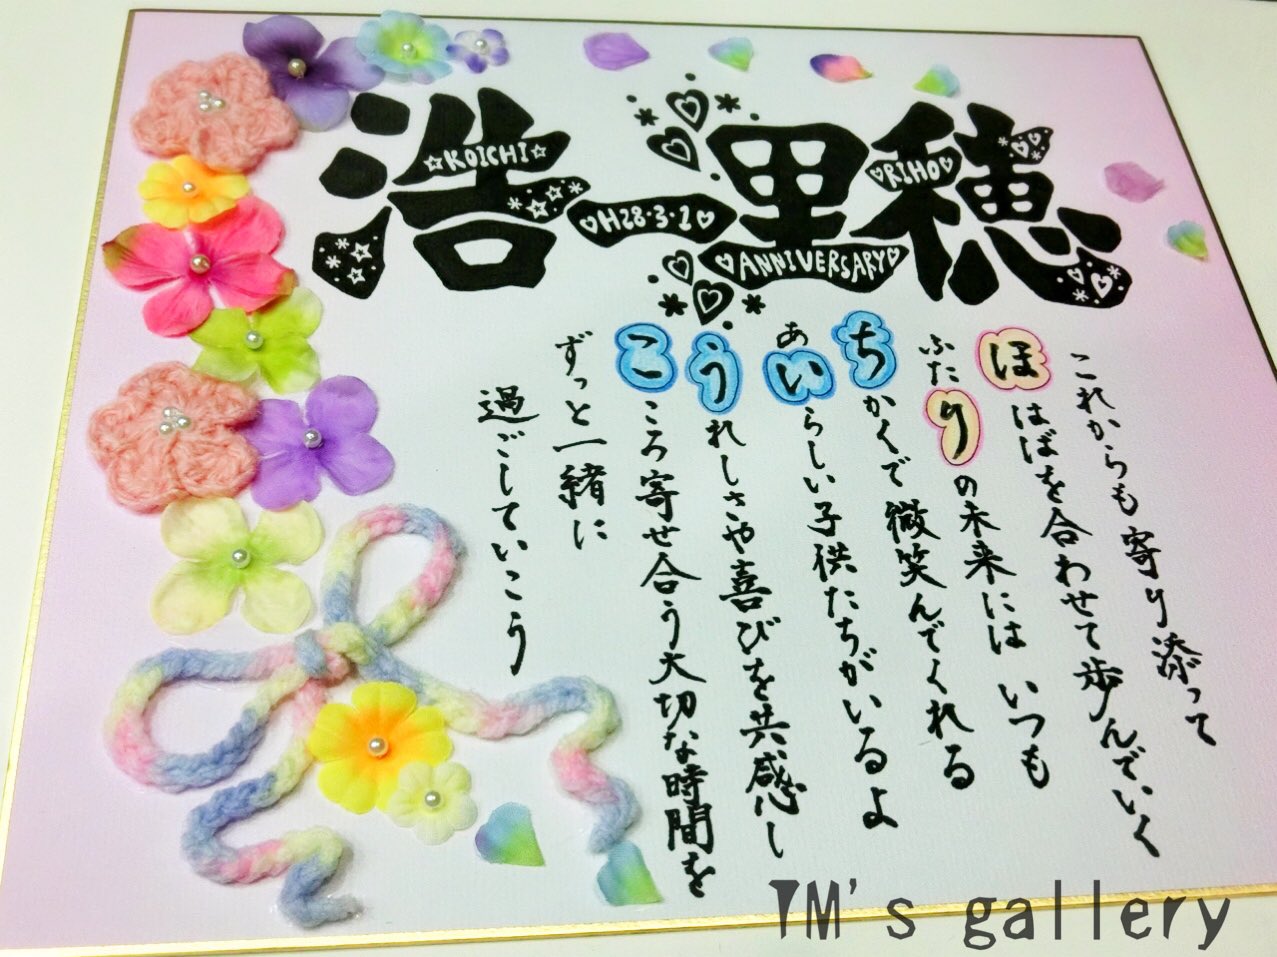 浩一里穂
☆KOICHI☆
♡H28・3・1♡
♡ANNIVERSARY♡
♡RIHO♡
これからも寄り添って
ほはばを合わせて歩んでいく
ふたりの未来には いつも
ちかくで微笑んでくれる
あいらしい子供たちがいるよ
うれしさや喜びを共感し
こころ寄せ合う大切な時間を
ずっと一緒に
過ごしていこう
TM's gallery